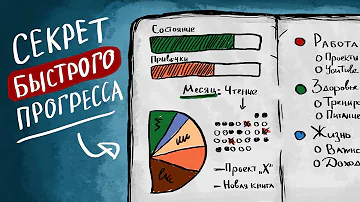 СЕКРЕТ
БЫСТРОГО
ПРОГРЕССА
Состояние
Привычки
Месяц: Чтение
Проект „X"
Новая книга
Работа
Проекты
YouTube
Здоровье
Питание
Жизнь